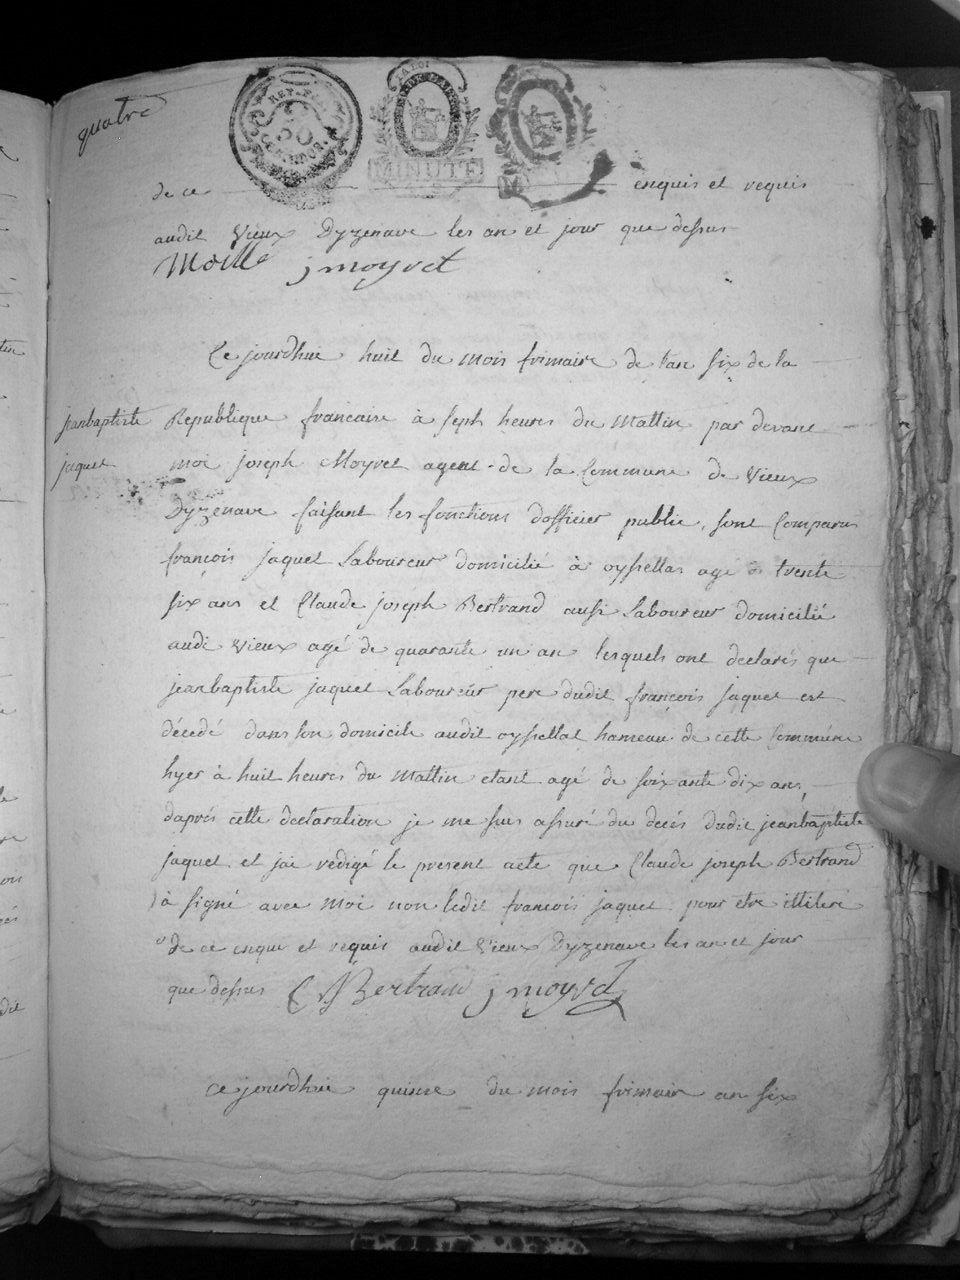 quatre
REP. FRA.
50
CENTIMES.
LA LOI
MINUTE
de ce enquis et requis
audit Vieux Dyzenave les an et jour que dessus
jmoyret
Ce jourdhui huit du mois frimaire de lan six de la
jeanbaptiste
jaquet
Republique francaise à seph heures du Mattin par devant
moi joseph Moyret agent de la Commune de Vieux
Dyzenave faisant les fonctions dofficier public, sont Comparus
françois jaquet Laboureur domicilié à oyssellas age de trente
six ans et Claude joseph Bertrand ausi Laboureur domicilié
audi Vieux agé de quarante un an lesquels ont declarés que
jeanbaptiste jaquet Laboureur pere dudit françois jaquet est
décedé dans son domicile audit oyssellat hameau de cette Commune
hyer à huit heures du Mattin etant agé de soixante dix ans,
daprés cette declaration je me suis assuré du decés dudit jeanbaptiste
jaquet et jai redigé le present acte que Claude joseph Bertrand
à signé avec moi non ledit francois jaquet pour etre illiteré
de ce enqui et requis audit Vieux Dyzenave les an et jour
que dessus C J Bertrand jmoyret
ce jourdhui quinse du mois frimair an six